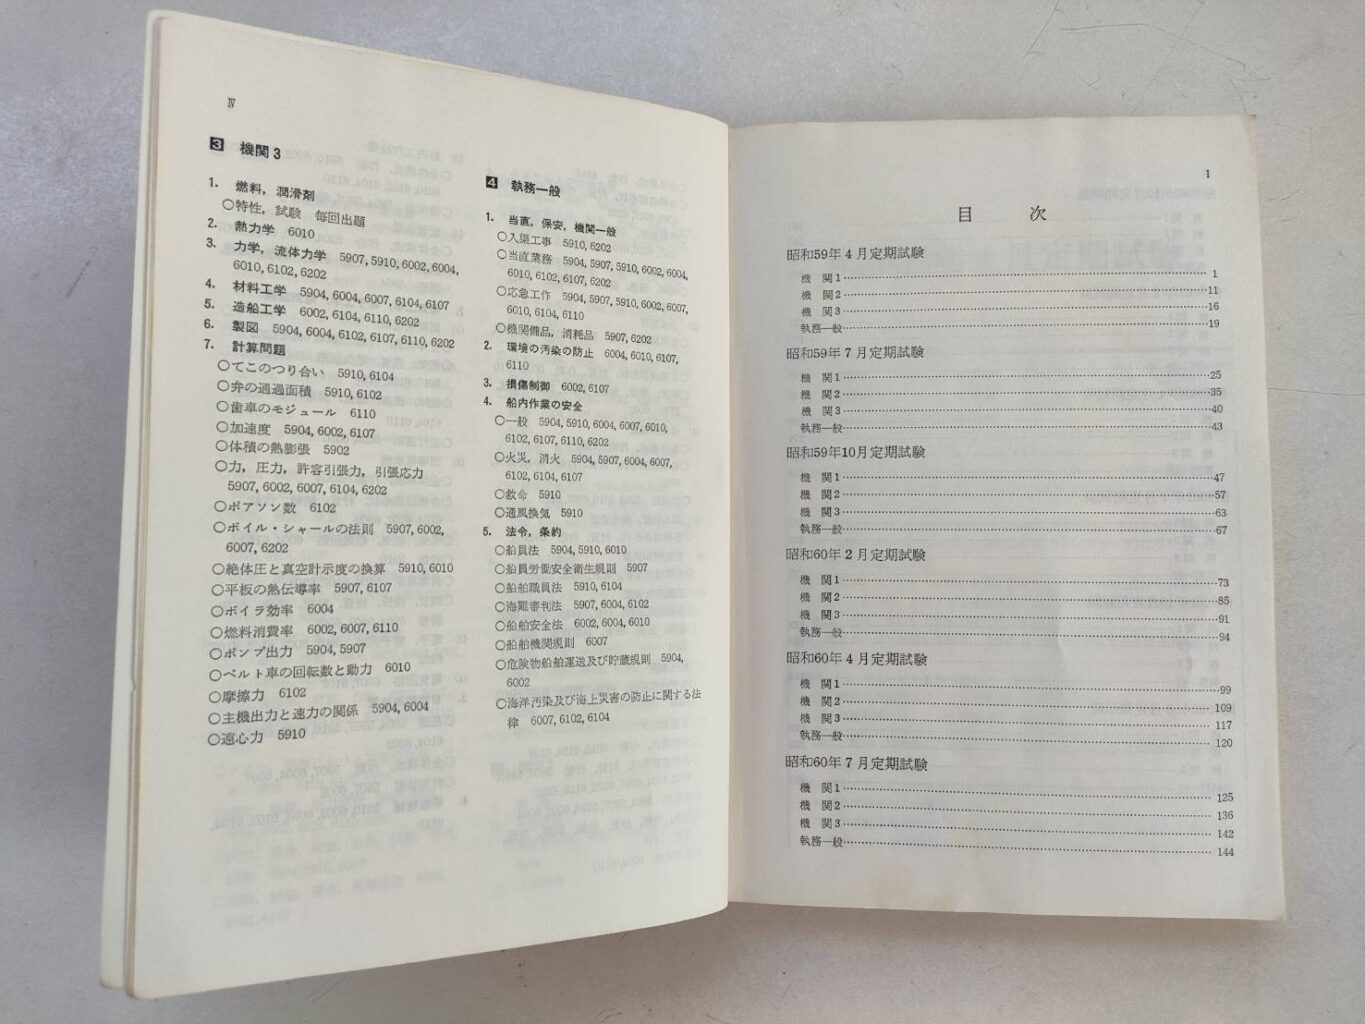 Ⅳ
3 機関3
1. 燃料，潤滑剤
○特性，試験 毎回出題
2. 熱力学 6010
3. 力学，流体力学 5907, 5910, 6002, 6004,
6010, 6102, 6202
4. 材料工学 5904, 6004, 6007, 6104, 6107
5. 造船工学 6002, 6104, 6110, 6202
6. 製図 5904, 6004, 6102, 6107, 6110, 6202
7. 計算問題
○てこのつり合い 5910, 6104
○弁の通過面積 5910, 6102
○歯車のモジュール 6110
○加速度 5904, 6002, 6107
○体積の熱膨張 5902
○力，圧力，許容引張力，引張応力
5907, 6002, 6007, 6104, 6202
○ポアソン数 6102
○ボイル・シャールの法則 5907, 6002,
6007, 6202
○絶体圧と真空計示度の換算 5910, 6010
○平板の熱伝導率 5907, 6107
○ボイラ効率 6004
○燃料消費率 6002, 6007, 6110
○ポンプ出力 5904, 5907
○ベルト車の回転数と動力 6010
○摩擦力 6102
○主機出力と速力の関係 5904, 6004
○遠心力 5910
4 執務一般
1. 当直，保安，機関一般
○入渠工事 5910, 6202
○当直業務 5904, 5907, 5910, 6002, 6004,
6010, 6102, 6107, 6202
○応急工作 5904, 5907, 5910, 6002, 6007,
6010, 6104, 6110
○機関備品，消耗品 5907, 6202
2. 環境の汚染の防止 6004, 6010, 6107,
6110
3. 損傷制御 6002, 6107
4. 船内作業の安全
○一般 5904, 5910, 6004, 6007, 6010,
6102, 6107, 6110, 6202
○火災，消火 5904, 5907, 6004, 6007,
6102, 6104, 6107
○救命 5910
○通風換気 5910
5. 法令，条約
○船員法 5904, 5910, 6010
○船員労働安全衛生規則 5907
○船舶職員法 5910, 6104
○海難審判法 5907, 6004, 6102
○船舶安全法 6002, 6004, 6010
○船舶機関規則 6007
○危険物船舶運送及び貯蔵規則 5904,
6002
○海洋汚染及び海上災害の防止に関する法
律 6007, 6102, 6104
I
目 次
昭和59年4月定期試験
機 関1 1
機 関2 11
機 関3 16
執務一般 19
昭和59年7月定期試験
機 関1 25
機 関2 35
機 関3 40
執務一般 43
昭和59年10月定期試験
機 関1 47
機 関2 57
機 関3 63
執務一般 67
昭和60年2月定期試験
機 関1 73
機 関2 85
機 関3 91
執務一般 94
昭和60年4月定期試験
機 関1 99
機 関2 109
機 関3 117
執務一般 120
昭和60年7月定期試験
機 関1 125
機 関2 136
機 関3 142
執務一般 144